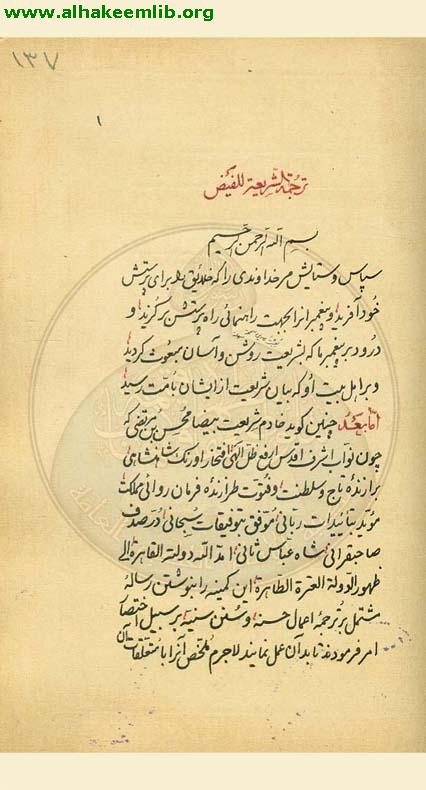 www.alhakeemlib.org
١٣٧
١
ترجمة الشریعة للفیض
بسم الله الرحمن الرحیم
سپاس و ستایش مر خداوندی را که خلایق را برای پرستش
خود آفرید و پیغمبرانرا بجهت راهنمائی راه پرستش برگزید و
درود بر پیغمبر ما که بشریعت روشن و آسان مبعوث گردید
و بر اهل بیت او که بیان شریعت از ایشان بامت رسید
اما بعد چنین گوید خادم شریعت بیضا محسن بن مرتضی که
چون نواب اشرف اقدس ارفع ظل الهی افتخار اورنک شاهنشاهی
برازندهٔ تاج و سلطنت و فتوت طرازندهٔ فرمان روائی مملکت
مؤید بتائیدات ربانی موفق بتوفیقات سبحانی در صدف
صاحبقرانی شاه عباس ثانی امد الله دولته القاهرة الی
ظهور الدولة العترة الطاهرة این کمینه را بنوشتن رسالهٔ
مشتمل بر ترجمهٔ اعمال حسنه و سنن سنیه بر سبیل اختصار
امر فرمودند تا بدان عمل نمایند لاجرم ملخص آنرا با متعلقات آن